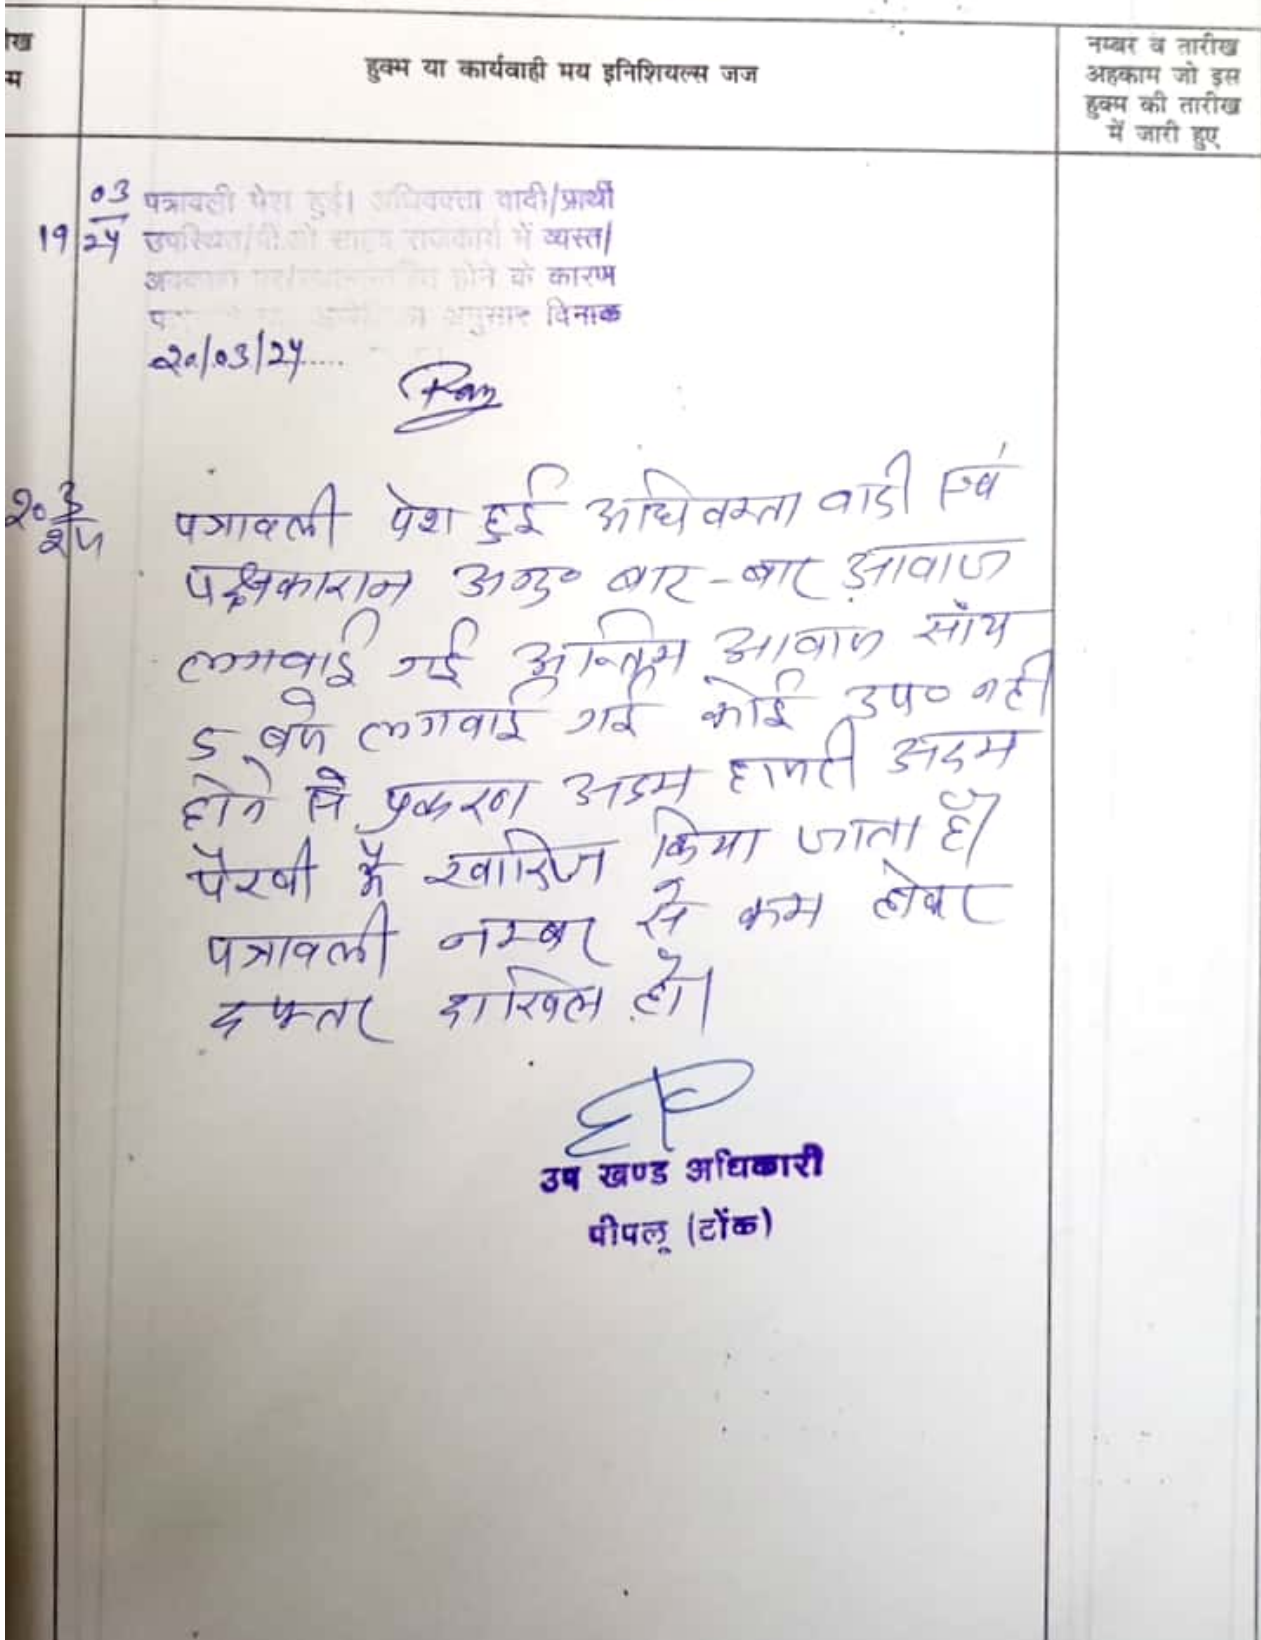 हुक्म या कार्यवाही मय इनिशियल्स जज
नम्बर व तारीख
अहकाम जो इस
हुक्म की तारीख
में जारी हुए
19 03/24
पत्रावली पेश हुई। अधिवक्ता वादी/प्रार्थी
उपस्थित/पी.ओ साहब राजकार्य में व्यस्त/
होने के कारण
अनुसार दिनाक
20/03/24
20 3/24
पत्रावली पेश हुई अधिवक्ता वादी एवं
पक्षकारान अनु० बार-बार आवाज
लगवाई गई अन्तिम आवाज साँय
5 बजे लगवाई गई कोई उप० नही
होने से प्रकरण अदम हाजरी अदम
पैरवी में खारिज किया जाता है।
पत्रावली नम्बर से कम होकर
दफ्तर दाखिल हो।
उप खण्ड अधिकारी
पीपलू (टोंक)